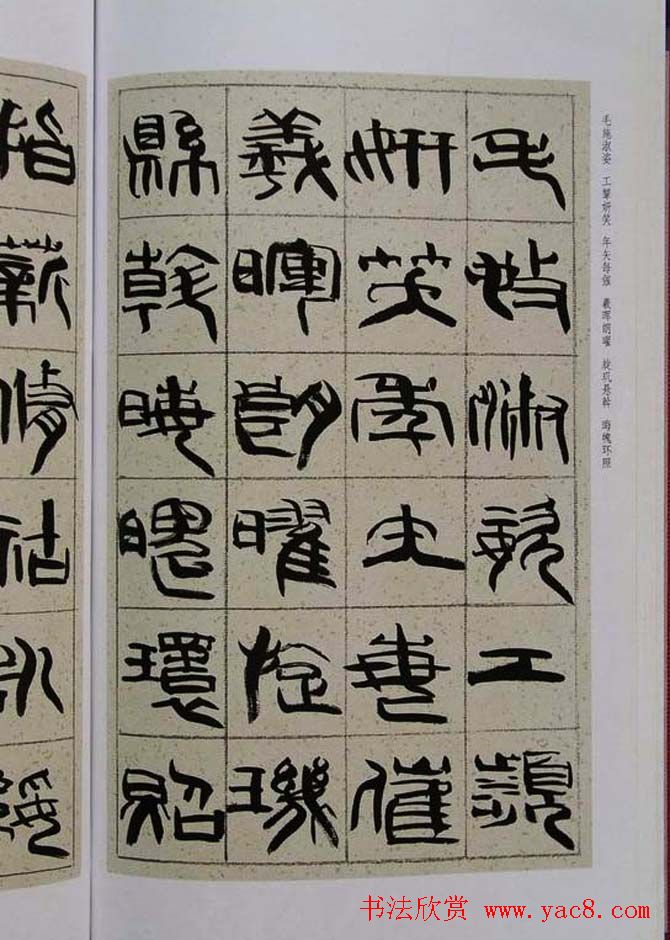 毛施淑姿 工颦妍笑 年矢每催 羲晖朗曜 旋玑悬斡 晦魄环照
毛施淑姿工顰
妍笑年矢每催
羲暉朗曜旋璣
縣斡晦魄環照
指薪修祜永綏
书法欣赏 www.yac8.com